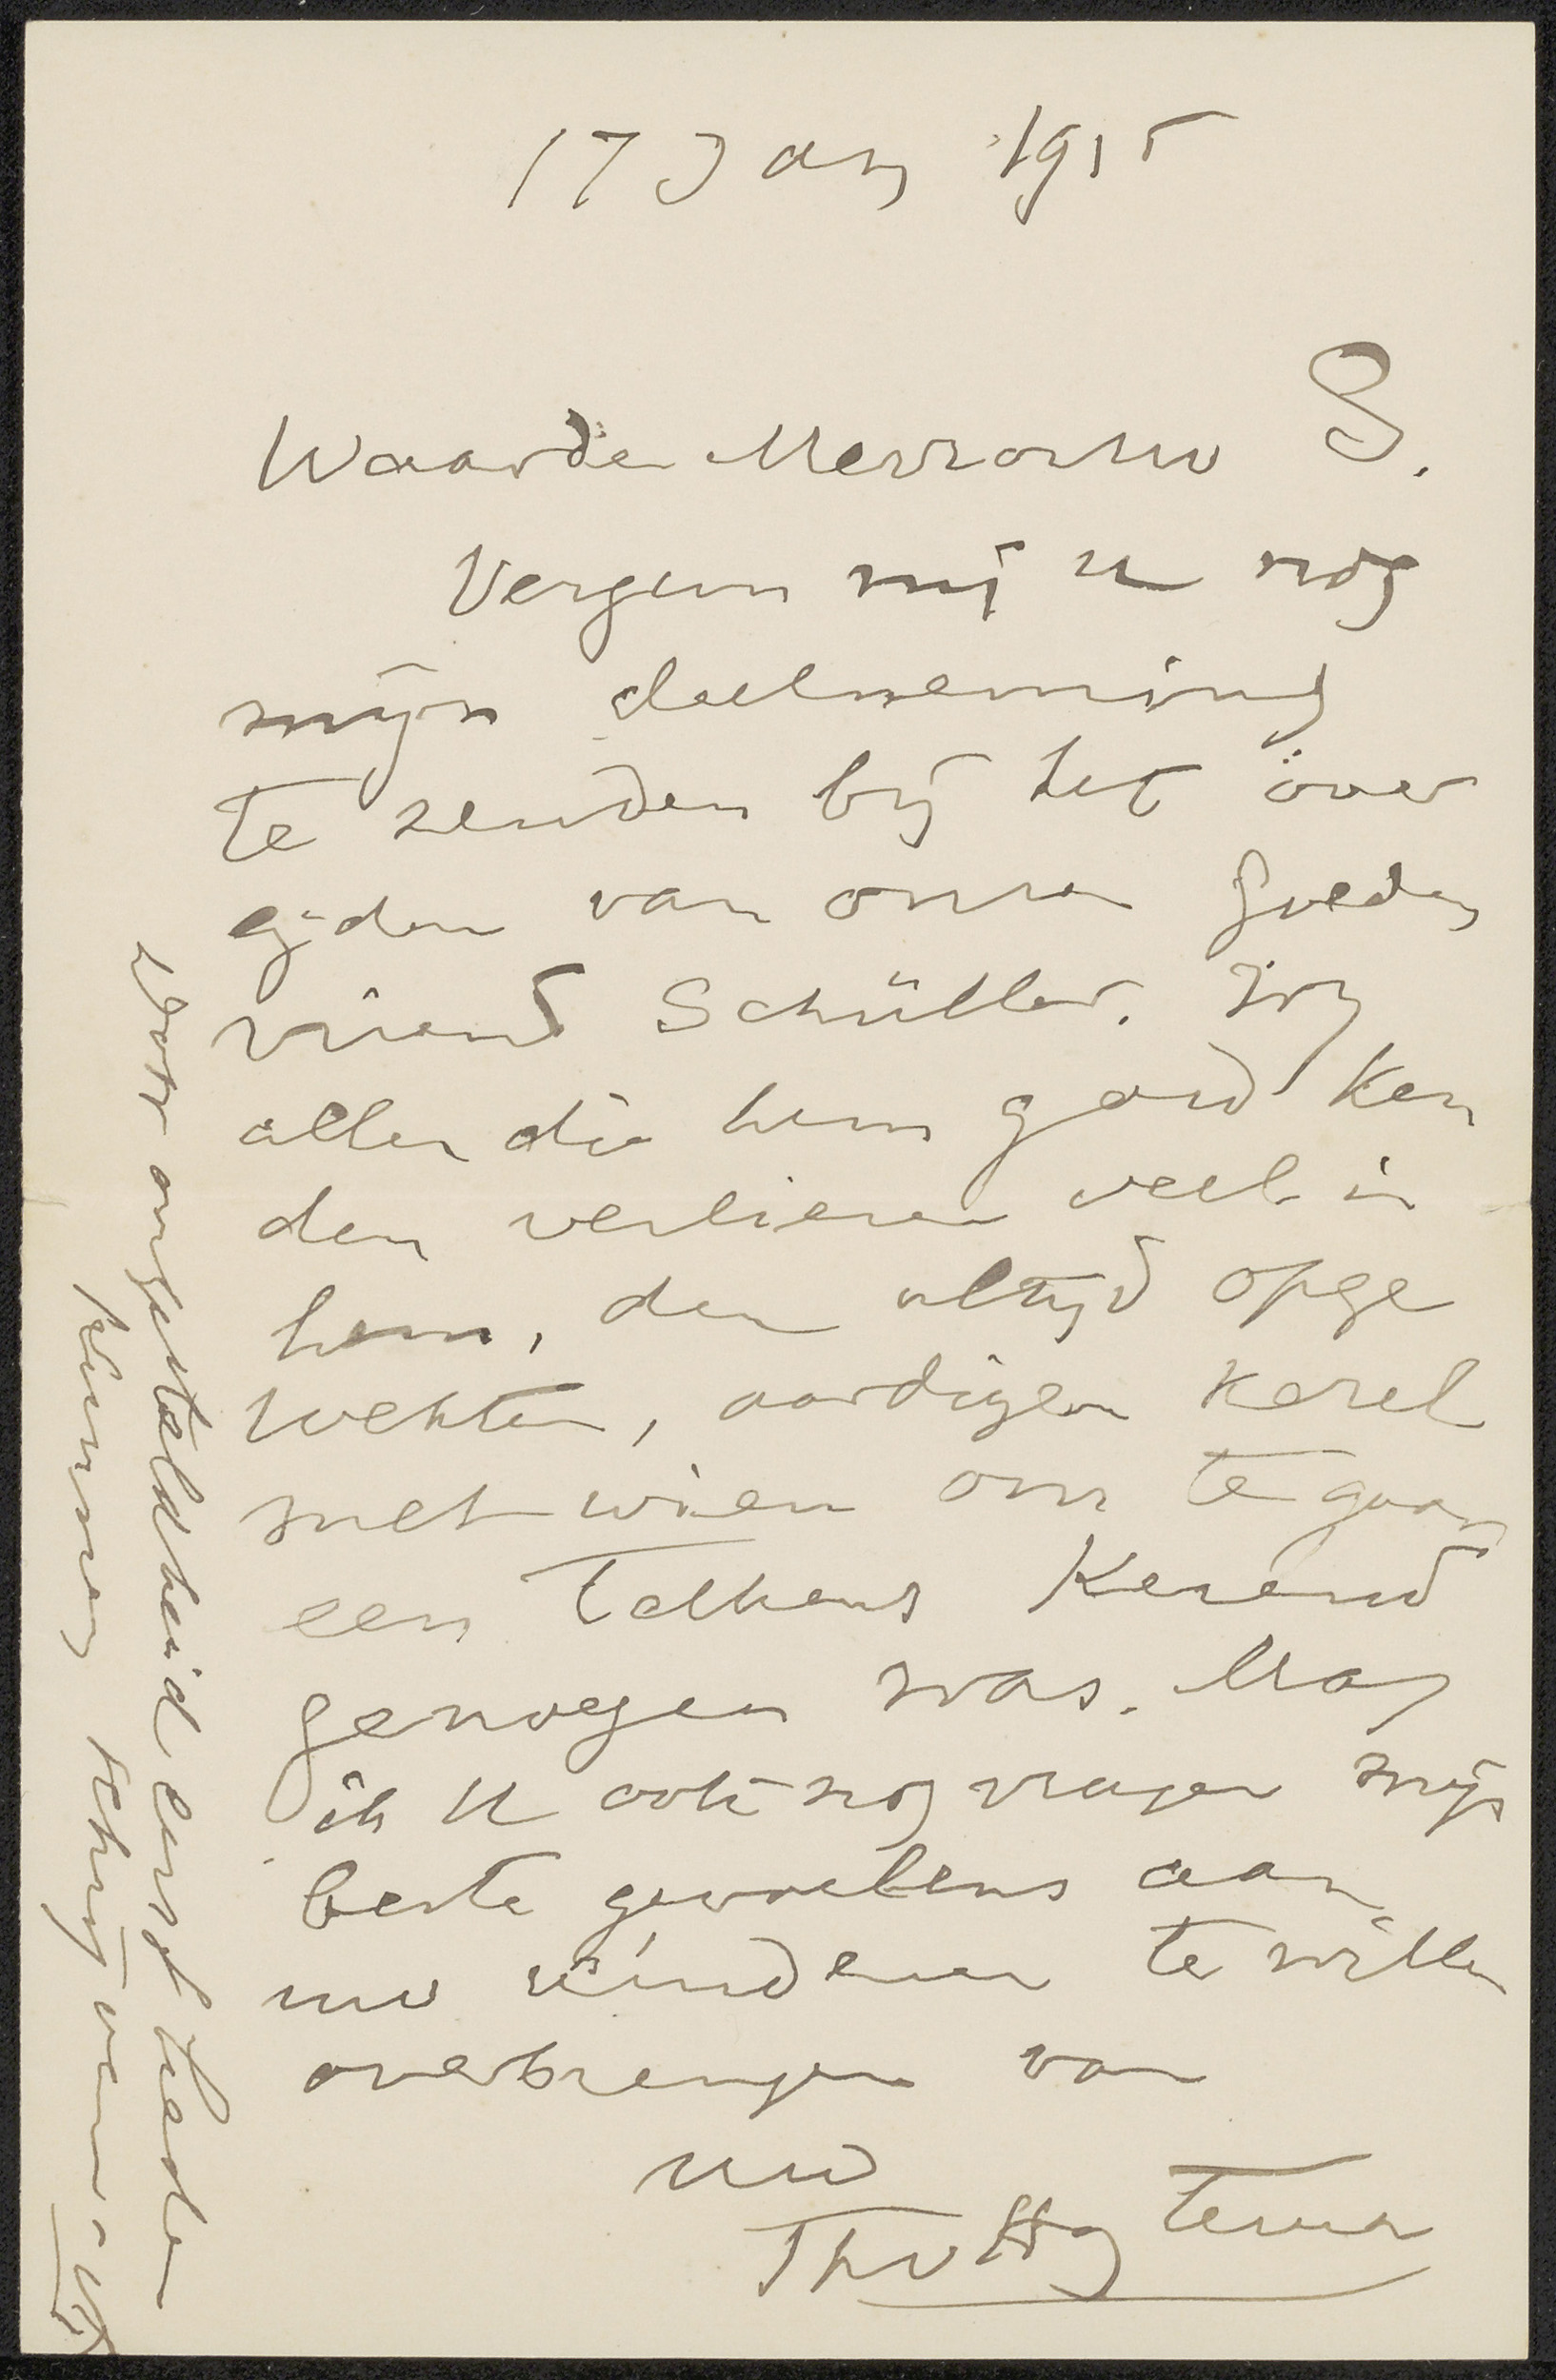 17 Jany 1915
Waarde Mevrouw S.
Vergun mij u nog
mijn deelneming
te zenden bij het over
lijden van onzen goeden
vriend Schüller. Zij
allen die hem goed ken
den verliezen veel in
hem, den altijd opge
wekten, aardigen kerel
met wien om te gaan
een telkens kerend
genoegen was. Mag
ik U ook nog vragen mijn
beste gevoelens aan
uw kinderen te willen
overbrengen van
uw
Th v Hoytema
door ongesteldheid eerst heden
kunnen schrijven